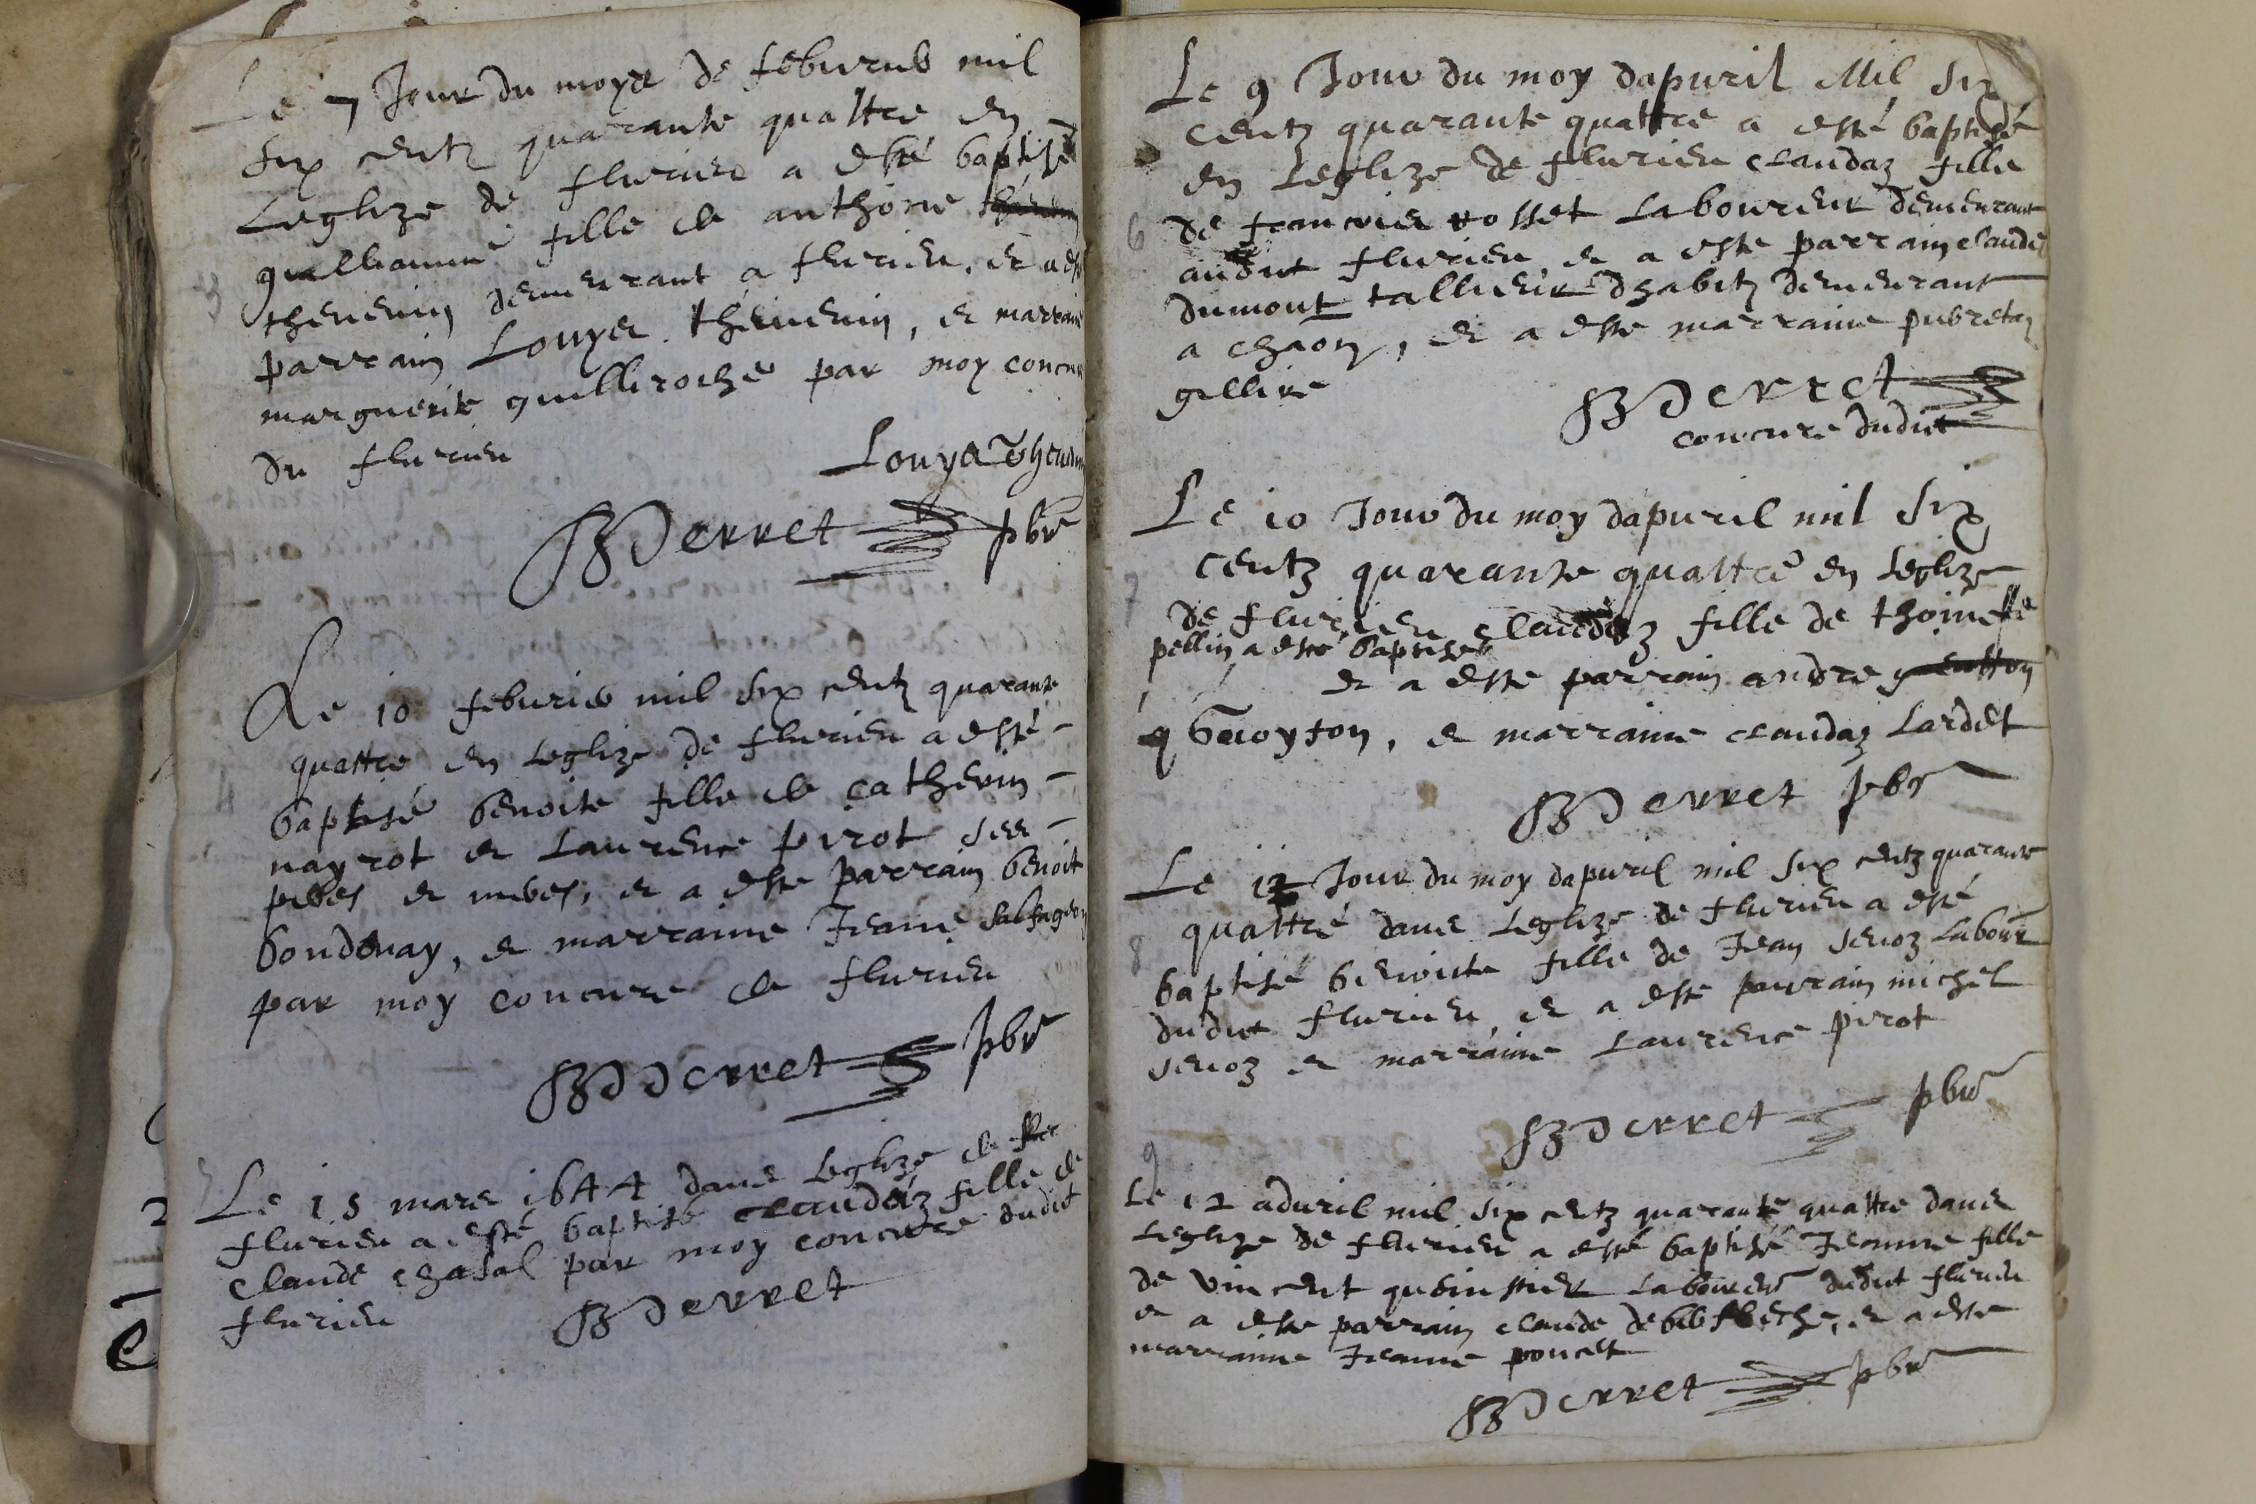 Le 7 Jour du moys de feburier mil
six centz quarante quattre en
Leglize de flurieu a esté baptisé
guillaume fille de anthoine
thevenin demeurant a flurieu, et a esté
parrain Louys thevenin, et marraine
marguerite guilleroche par moy concuré
du flurieu
Louys Thevenin
BDerret pbr
3
Le 10 feburier mil six centz quarante
quattre en Leglize de flurieu a esté
baptisé benoite fille de catherin
nayrot et Laurence pirot ses
peres et meres, et a esté parrain benoit
bondenay, et marraine Jeane
par moy concuré de flurieu
BDerret pbr
4
Le 15 mars 1644 dans Leglize de
flurieu a esté baptisé claudaz fille de
claude chasal par moy concure dudit
flurieu
BDerret
5
Le 9 Jour du moy dapuril Mil six
centz quarante quattre a esté baptisé
en Leglize de flurieu claudaz fille
de francois rosset Laboureur demeurant
audit flurieu et a este parrain claude
dumont tallieur dhabitz demeurant
a chaon, et a este marraine
gillire
BDerret
concure dudit
6
Le 10 Jour du moy dapuril mil six
centz quarante quattre en Leglize
de flurieu claudaz fille de thoinette
pellin a esté baptisé
et a este parrain andre
, et marraine claudaz Lardet
BDerret pbr
7
Le 12 Jour du moy dapuril mil six centz quarante
quattre dans Leglize de flurieu a esté
baptisé benoiste fille de Jean Jenoz Labour
dudit flurieu, et a este parrain michel
Jenoz et marraine Laurence pirot
BDerret pbr
8
9
Le 12 apuril mil six centz quarante quattre dans
Leglize de flurieu a esté baptisé Jeanne fille
de vincent Laboureur dudit flurieu
et a este parrain claude, et a este
marraine Jeanne poncet
BDerret pbr